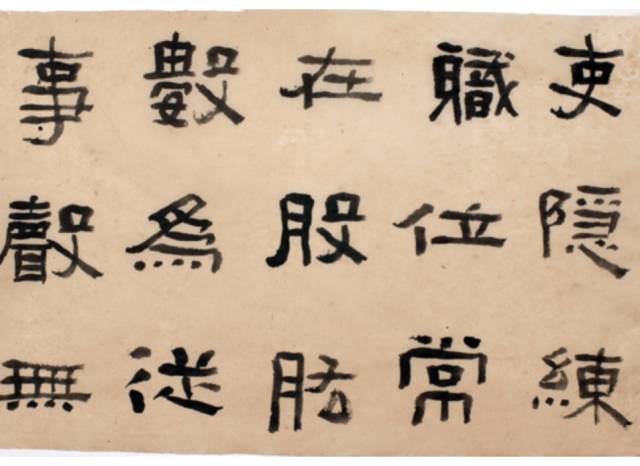 吏隱練
職位常
在股肱
數為從
事聲無